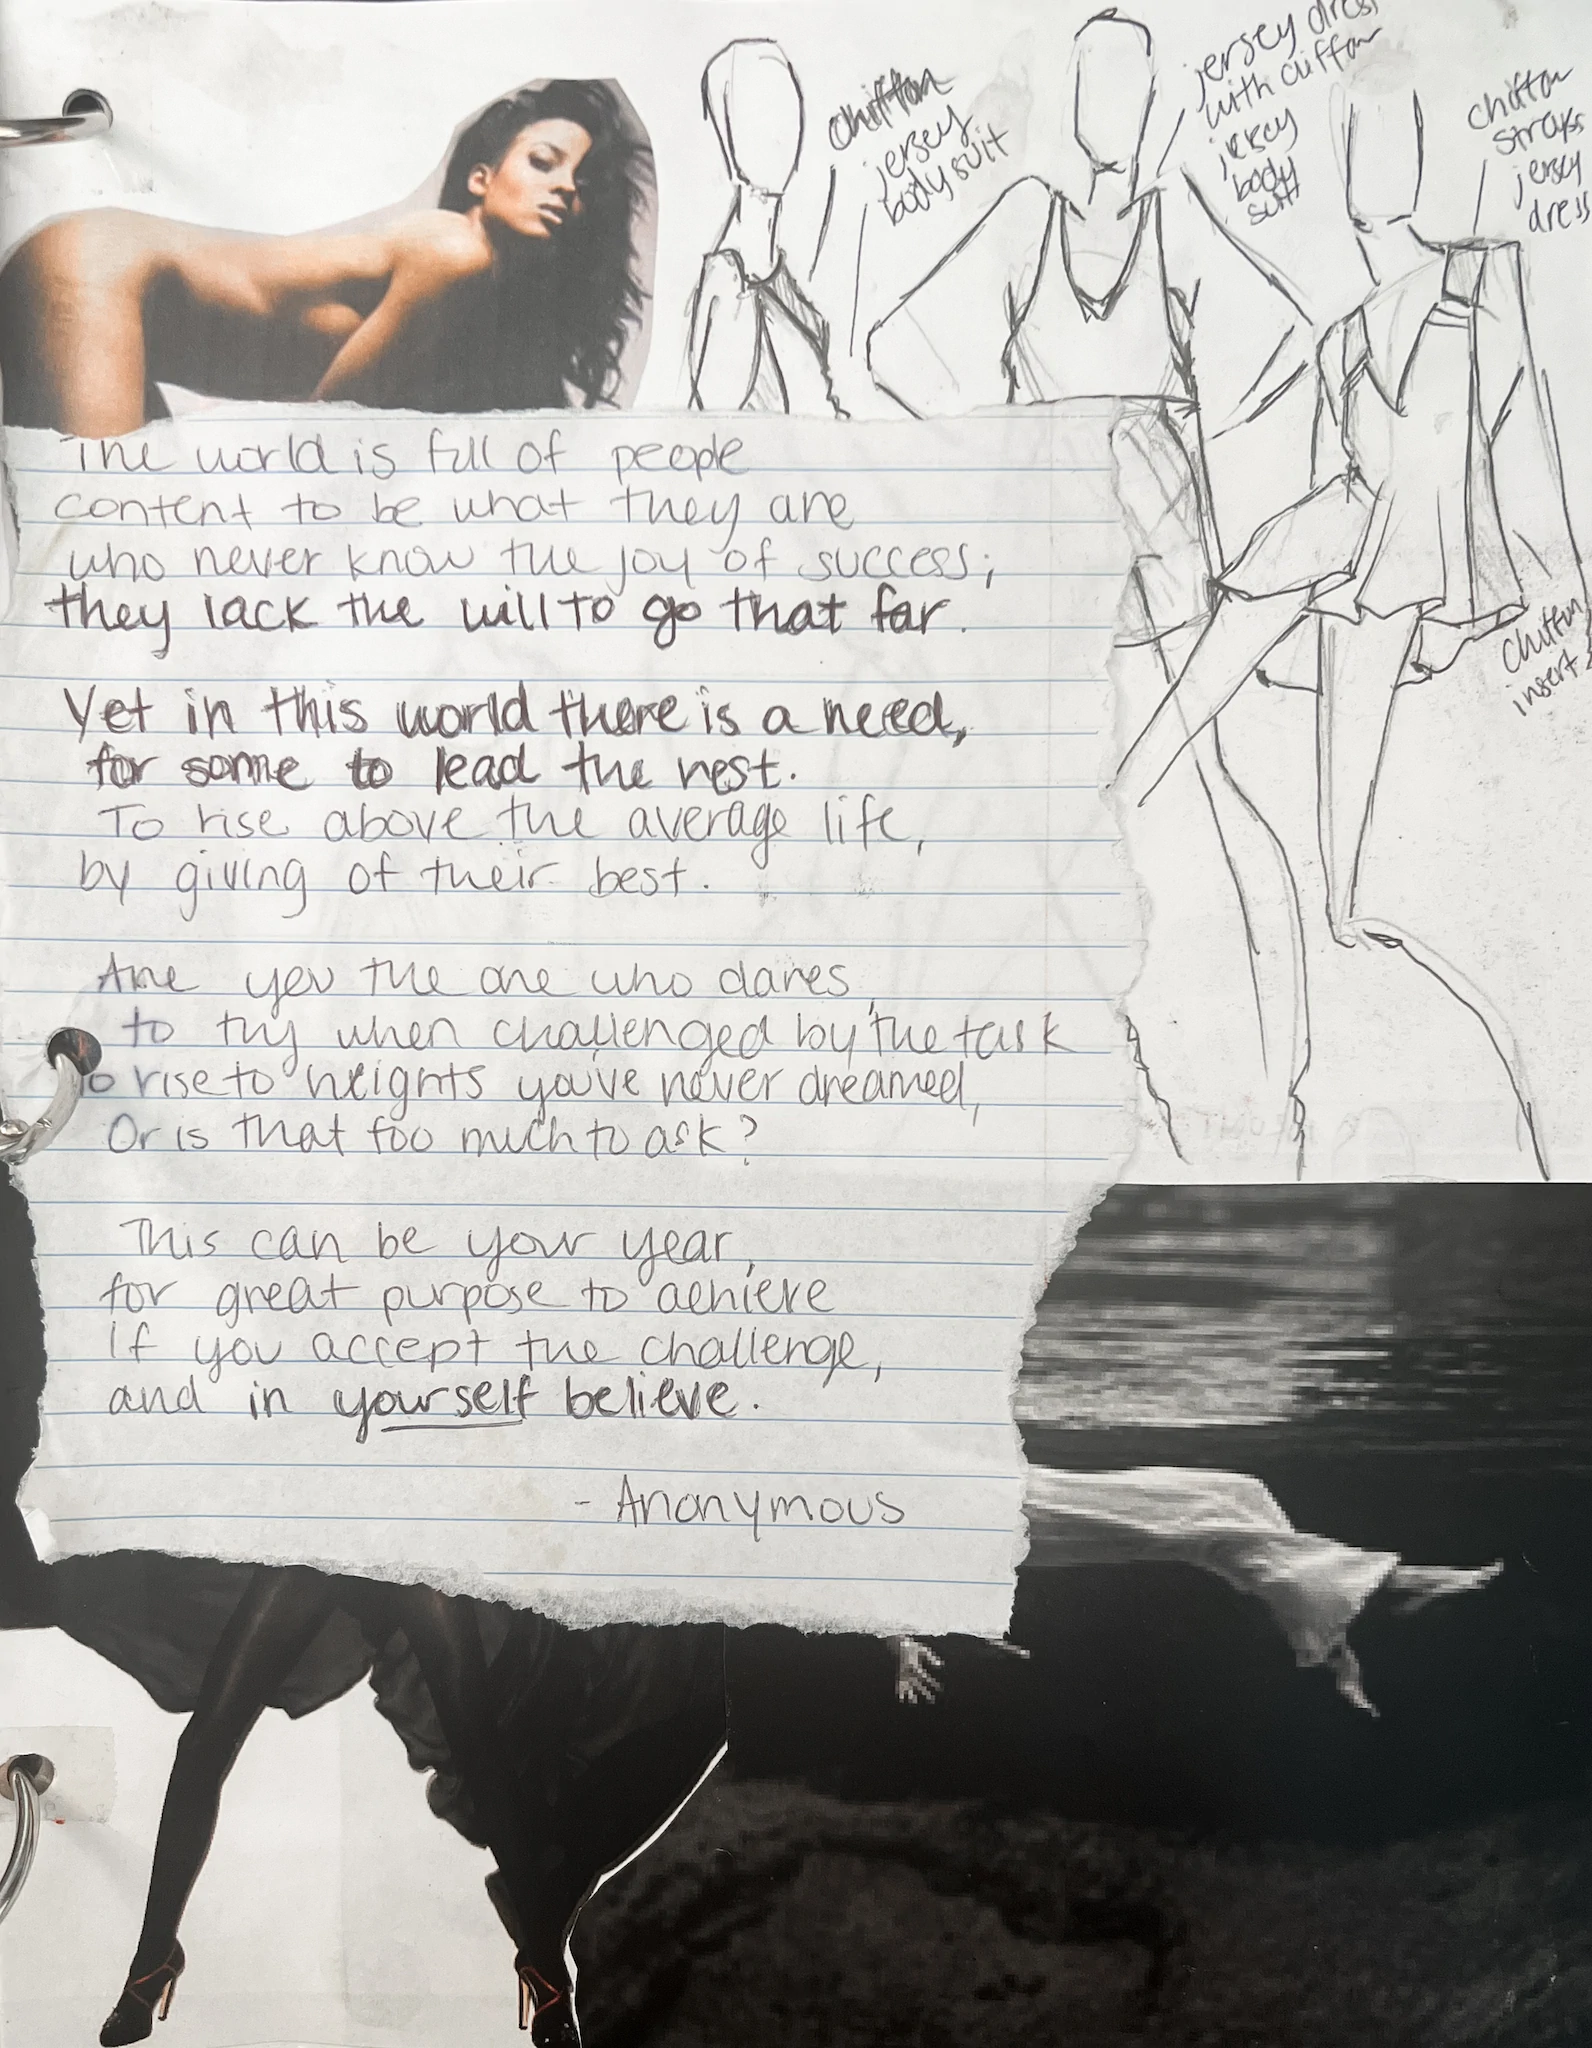 chiffon
jersey
body suit
jersey dress
with ciiffon
jersey
body
suit
chiffon
straps
jersey
dress
chiffon
insert
The world is full of people
content to be what they are
who never know the joy of success;
they lack the will to go that far.
Yet in this world there is a need,
for some to lead the rest.
To rise above the average life,
by giving of their best.
Are you the one who dares,
to try when challenged by the task
To rise to heights you've never dreamed,
Or is that too much to ask?
This can be your year,
for great purpose to achieve
If you accept the challenge,
and in yourself believe.
- Anonymous